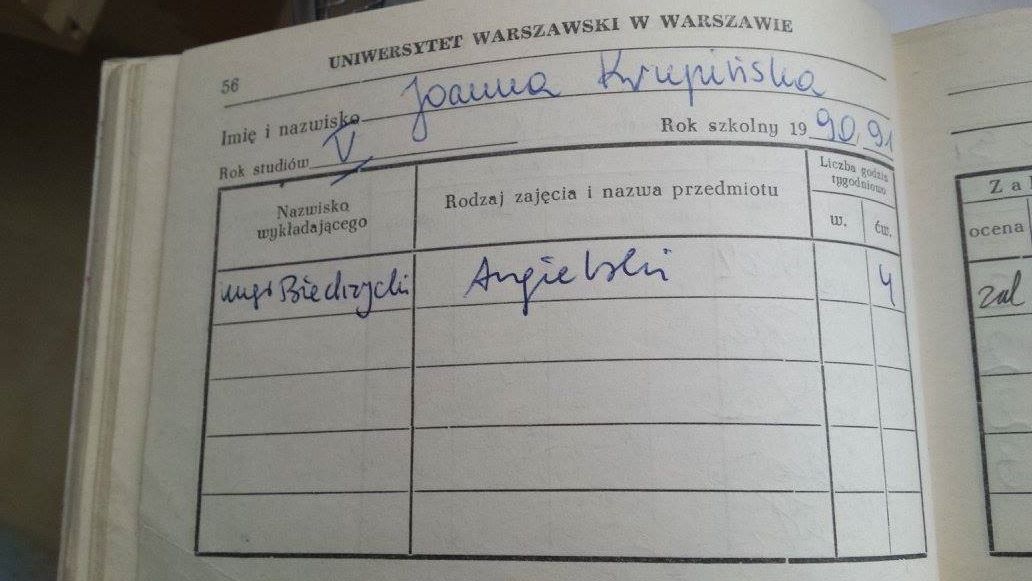 UNIWERSYTET WARSZAWSKI W WARSZAWIE
56
Imię i nazwisko Joanna Krupińska
Rok studiów V Rok szkolny 19 90/91
Nazwisko wykładającego
Rodzaj zajęcia i nazwa przedmiotu
Liczba godzin
tygodniowo
w. ćw.
mgr Biedrzycki Angielski 4
ocena
zal